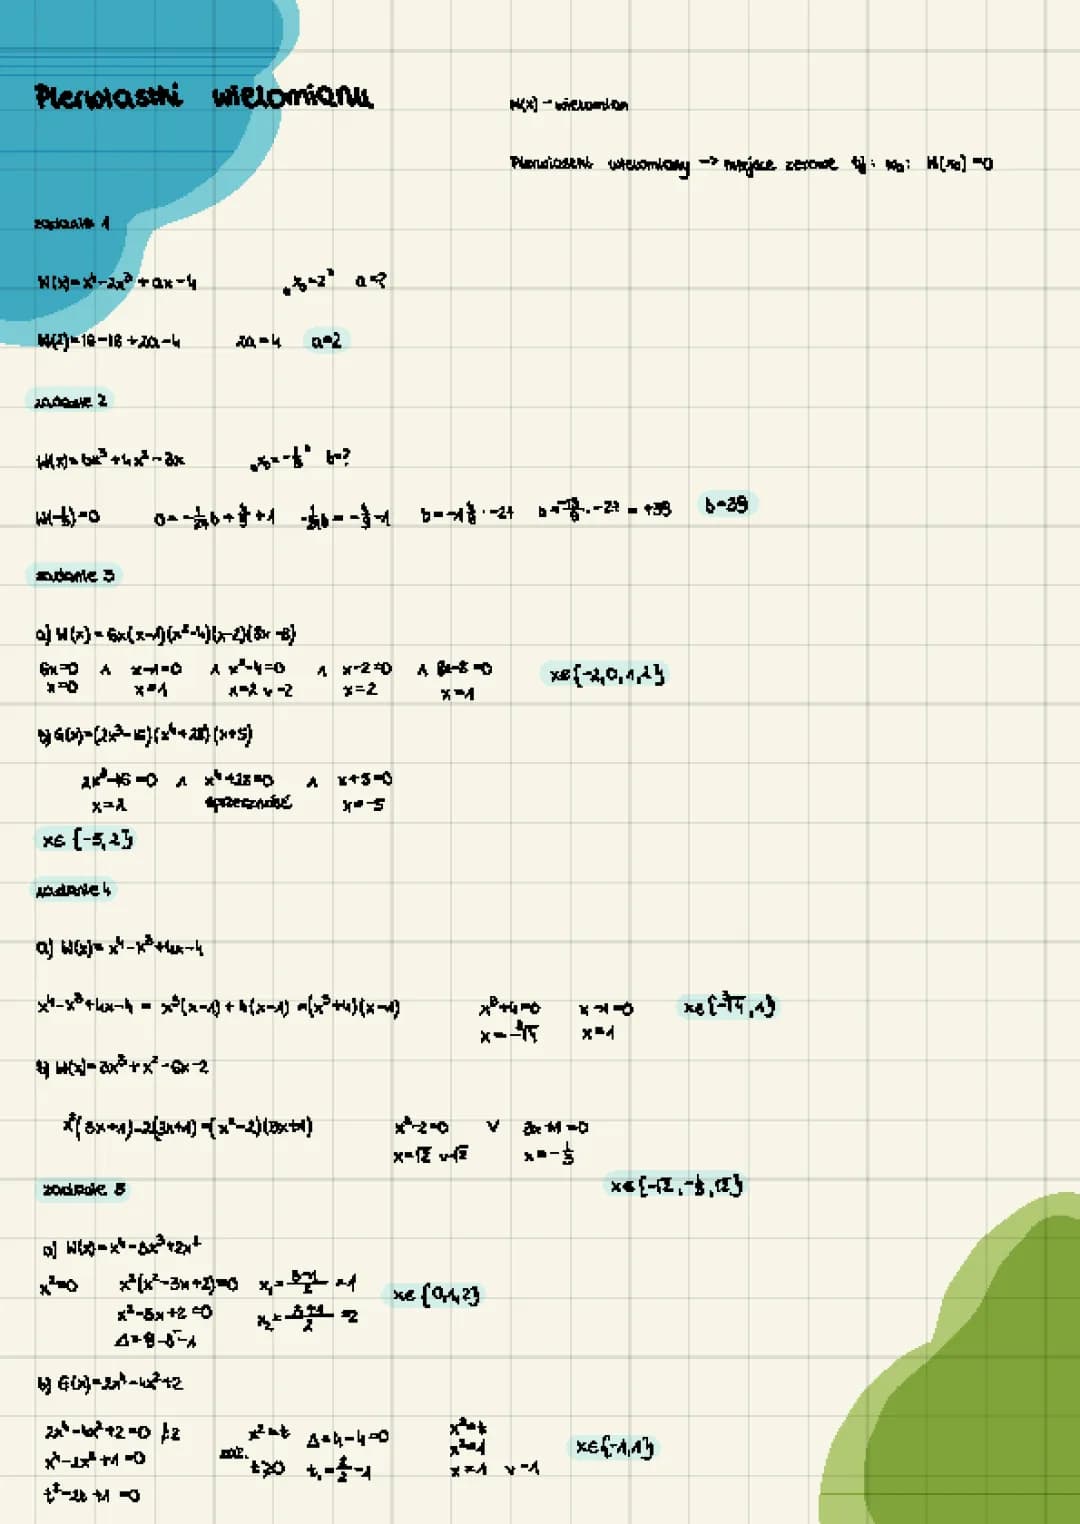 Pierwiastki wielomianu
W(x) - wielomian
Pierwiastki wielomianu -> miejsce zerowe tj: x₀: W(x₀) = 0
zadanie 1
W(x) = x⁴-2x³+ax-4 „x₀=2” a=?
W(2)=16-16+2a-4 2a=4 a=2
zadanie 2
W(x)=bx³+4x²-3x „x₀=-1/3” b=?
W(-1/3)=0 0=-1/27b+4/9+1 -1/27b=-4/9-1 b=-1 4/9·-27 b=-13/9·-27=+39 b=39
zadanie 3
a) W(x)=6x(x-1)(x²-4)(x-2)(8x-8)
6x=0 ∧ x-1=0 ∧ x²-4=0 ∧ x-2=0 ∧ 8x-8=0 x∈{-2,0,1,2}
x=0 x=1 x=2 v -2 x=2 x=1
b) G(x)=(2x³-16)(x⁴+28)(x+5)
2x³-16=0 ∧ x⁴+28=0 ∧ x+5=0
x=2 sprzeczność x=-5
x∈{-5,2}
zadanie 4
a) W(x)=x⁴-x³+4x-4
x⁴-x³+4x-4 = x³(x-1)+4(x-1) =(x³+4)(x-1) x³+4=0 x-1=0 x∈{-∛4,1}
x=-∛4 x=1
b) W(x)=3x³+x²-6x-2
x²(3x+1)-2(3x+1)=(x²-2)(3x+1) x²-2=0 v 3x+1=0
x=√2 v -√2 x=-1/3
zadanie 5 x∈{-√2,-1/3,√2}
a) W(x)=x⁴-3x³+2x²
x²=0 x²(x²-3x+2)=0 x₁=3-1/2=1 x∈{0,1,2}
x²-3x+2=0 x₂=3+1/2=2
Δ=9-8=1
b) G(x)=2x⁴-4x²+2
2x⁴-4x²+2=0 |:2 x²=t Δ=4-4=0 x²=t x∈{-1,1}
x⁴-2x²+1=0 zał. t≥0 t₁=2/2=1 x²=1
t²-2t+1=0 x=1 v -1